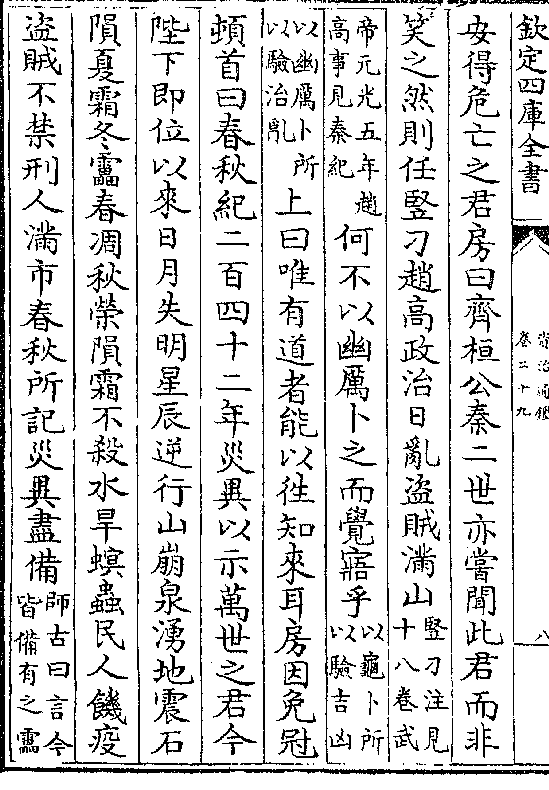 欽定四庫全書
資治通鑑
卷二十九
八
安得危亡之君房曰齊桓公秦二世亦嘗聞此君而非
笑之然則任豎刁趙高政治日亂盜賊滿山豎刁注見
十八卷武
帝元光五年趙
高事見秦紀何不以幽厲卜之而覺寤乎以龜卜所
以驗吉凶
以幽厲卜所
以驗治亂上曰唯有道者能以徃知來耳房因免冠
頓首曰春秋紀二百四十二年災異以示萬世之君今
陛下即位以來日月失明星辰逆行山崩泉湧地震石
隕夏霜冬靁春凋秋榮隕霜不殺水旱螟蟲民人饑疫
盜賊不禁刑人滿市春秋所記災異盡備師古曰言今
皆備有之靁